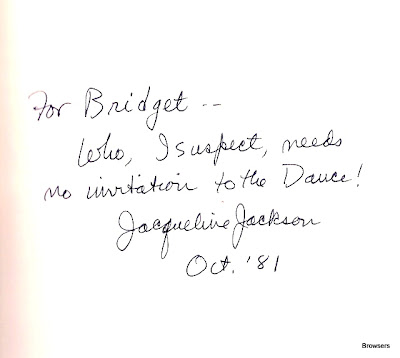 For Bridget --
Who, I suspect, needs
no invitation to the Dance!
Jacqueline Jackson
Oct. '81
Browsers